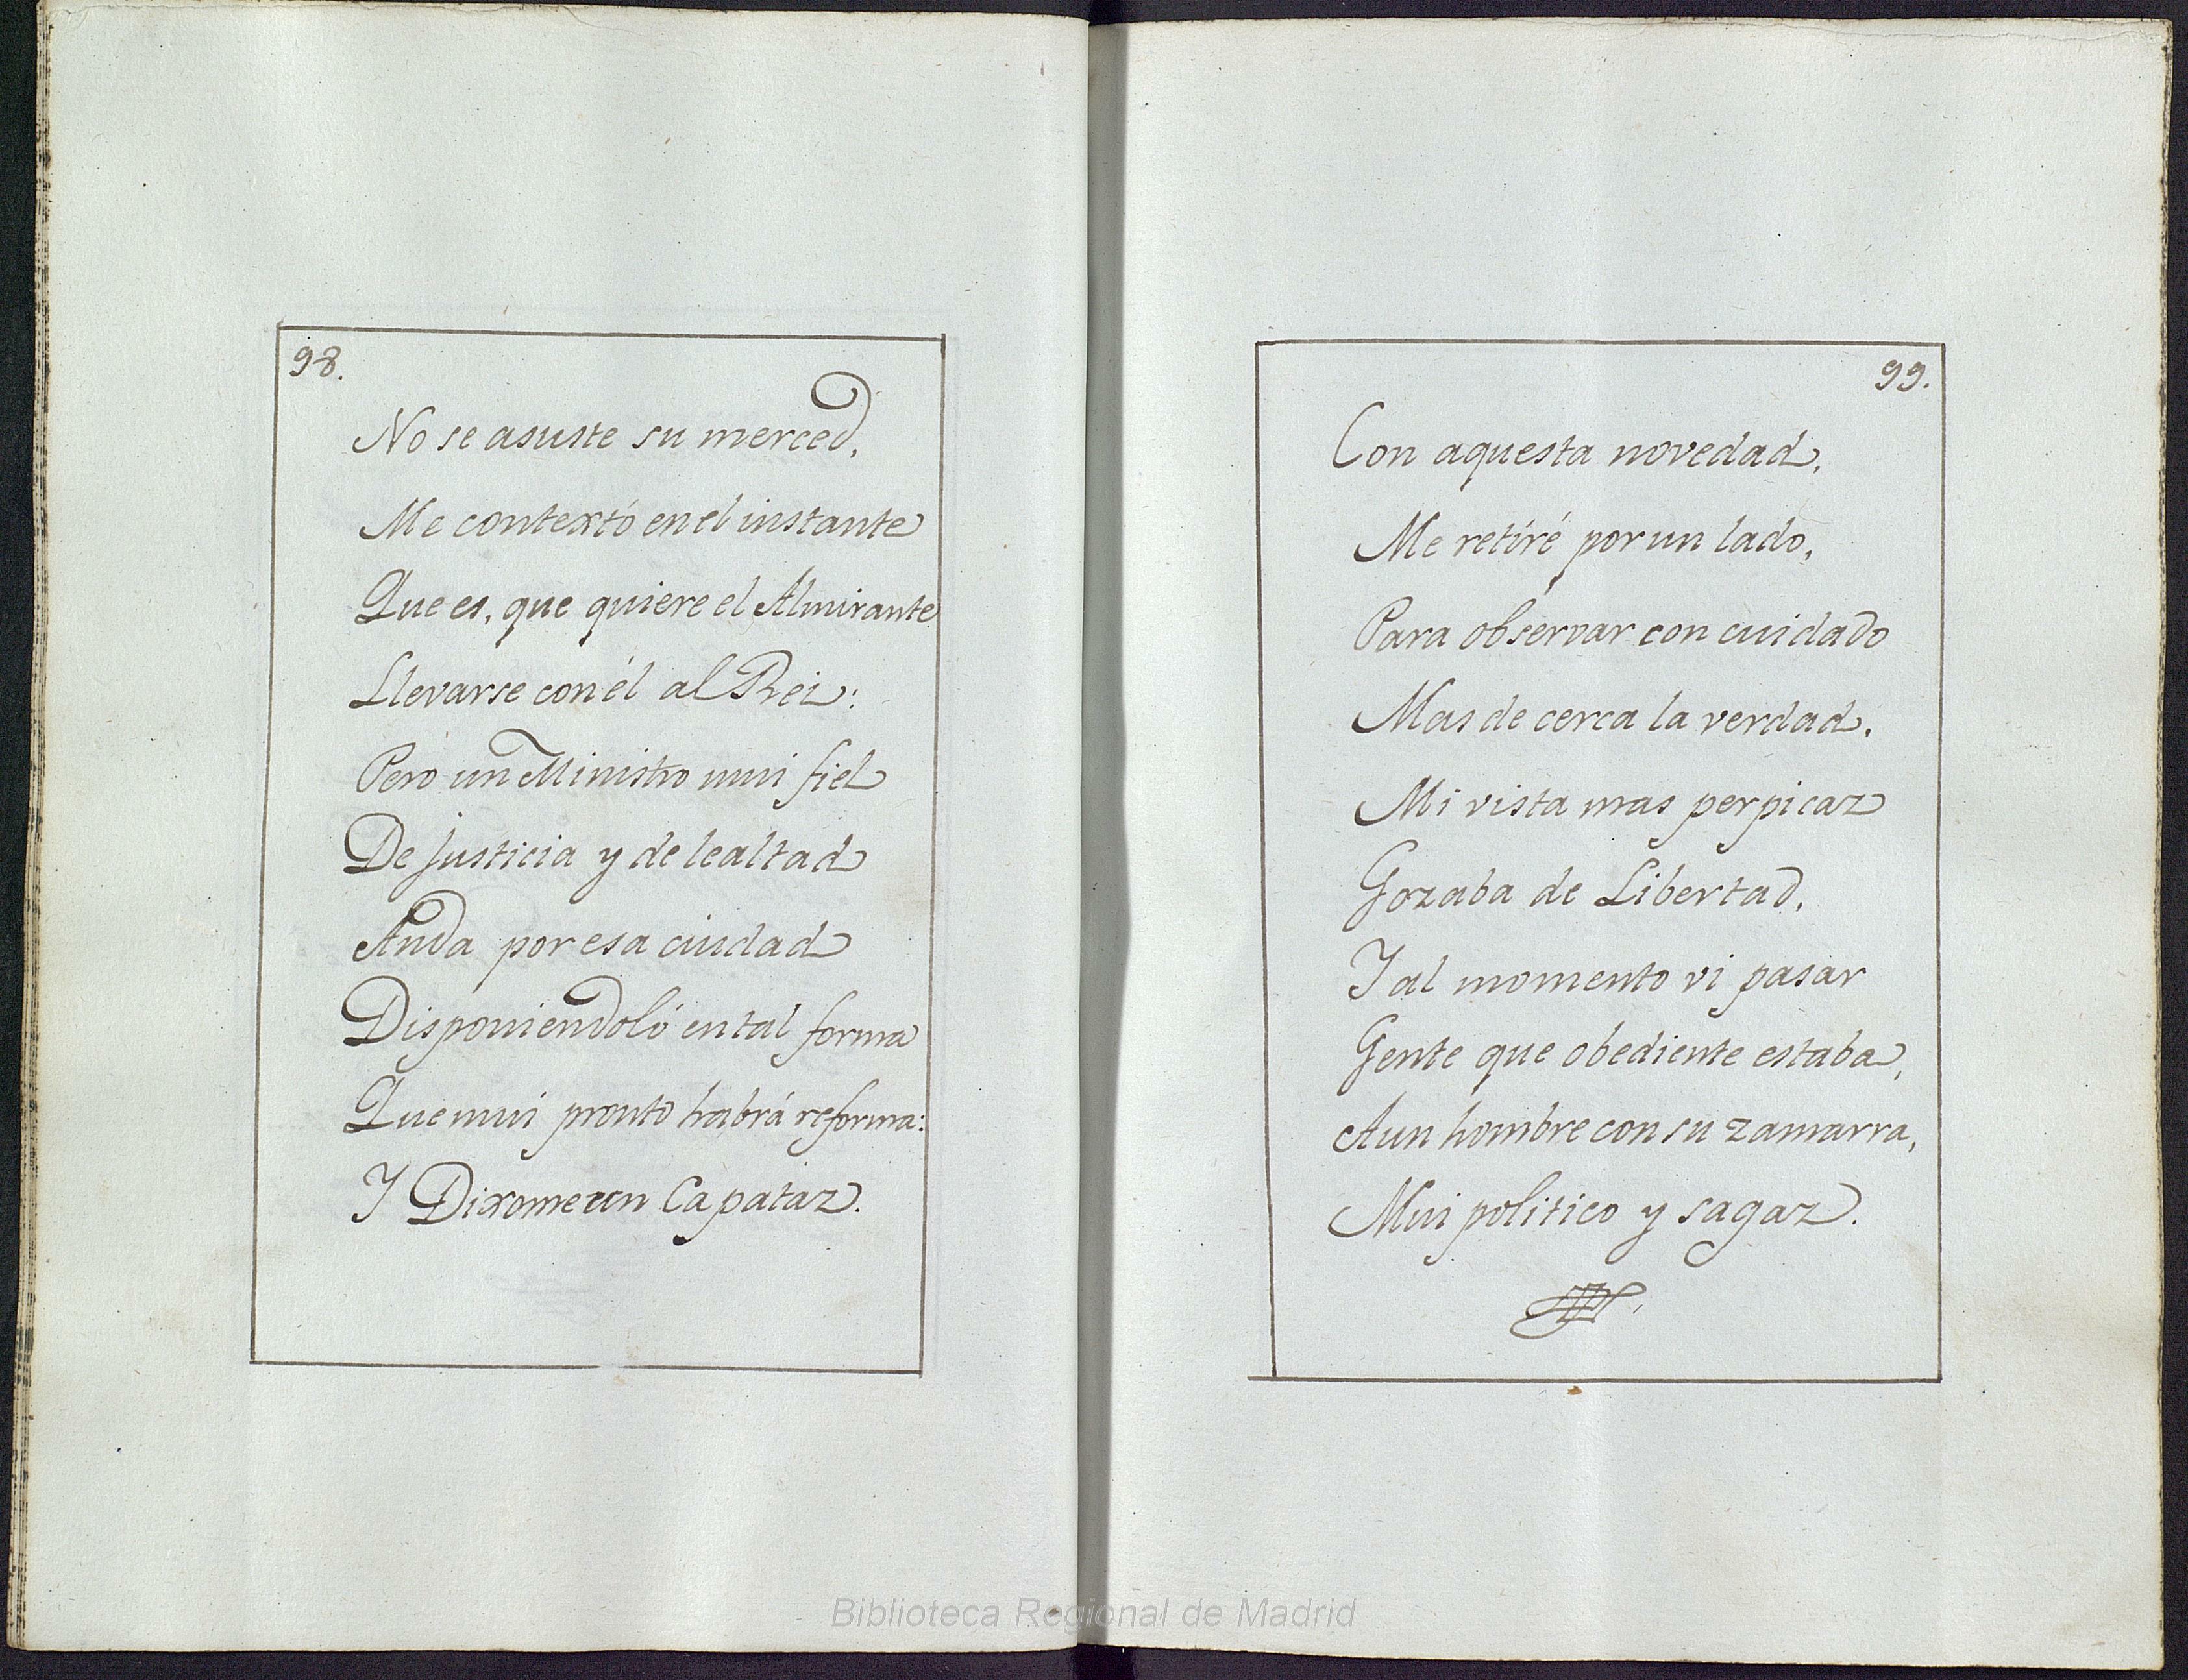 98.
No se asuste su merced,
Me contextó en el instante
Que es, que quiere el Almirante
Llevarse con él al Rei:
Pero un Ministro mui fiel
De Justicia y de lealtad
Anda por esa ciudad
Disponiendoló en tal forma
Que mui pronto habrá reforma:
Y Dixome un Capataz.
99.
Con aquesta novedad,
Me retiré por un lado,
Para observar con cuidado
Mas de cerca la verdad.
Mi vista mas perpicaz
Gozaba de Libertad,
Y al momento vi pasar
Gente que obediente estaba,
A un hombre con su zamarra,
Mui politico y sagaz.
Biblioteca Regional de Madrid